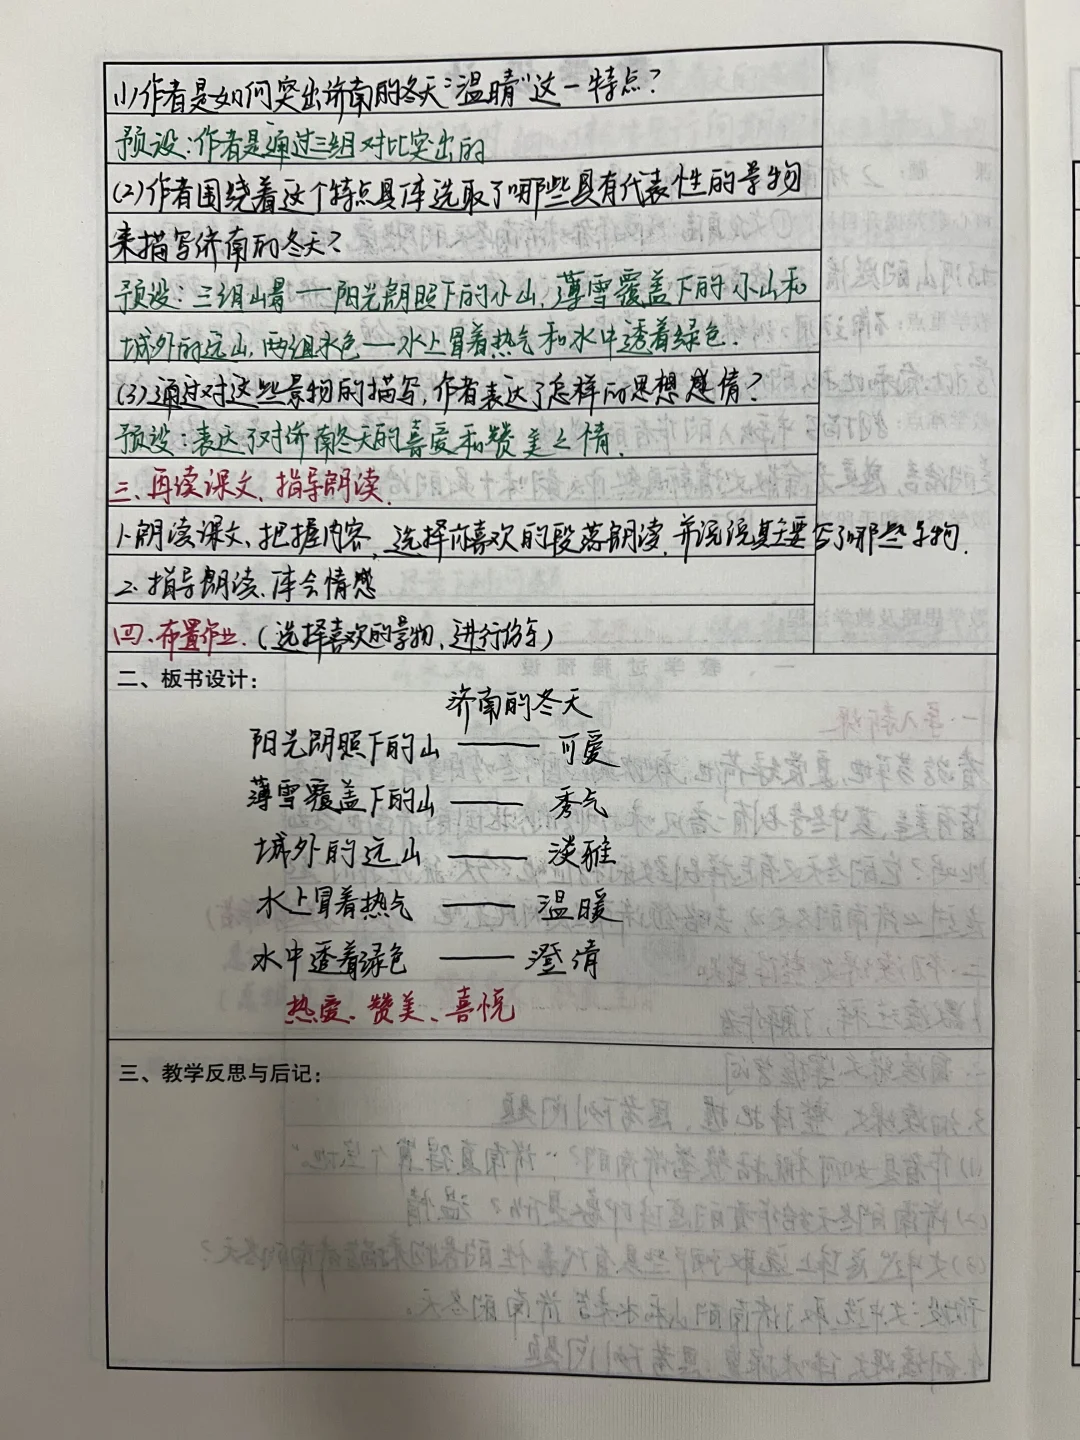 (1)作者是如何突出济南的冬天“温晴”这一特点？
预设：作者是通过三组对比突出的
(2)作者围绕着这个特点具体选取了哪些具有代表性的景物
来描写济南的冬天？
预设：三组山景——阳光朗照下的小山，薄雪覆盖下的小山和
城外的远山，两组水色——水上冒着热气和水中透着绿色．
(3)通过对这些景物的描写，作者表达了怎样的思想感情？
预设：表达了对济南冬天的喜爱和赞美之情．
三．再读课文，指导朗读．
1．朗读课文，把握内容，选择喜欢的段落朗读，并说说其主要写了哪些景物．
2．指导朗读．体会情感
四．布置作业．（选择喜欢的景物，进行仿写）
二、板书设计：
济南的冬天
阳光朗照下的山 —— 可爱
薄雪覆盖下的山 —— 秀气
城外的远山 —— 淡雅
水上冒着热气 —— 温暖
水中透着绿色 —— 澄清
热爱、赞美、喜悦
三、教学反思与后记：